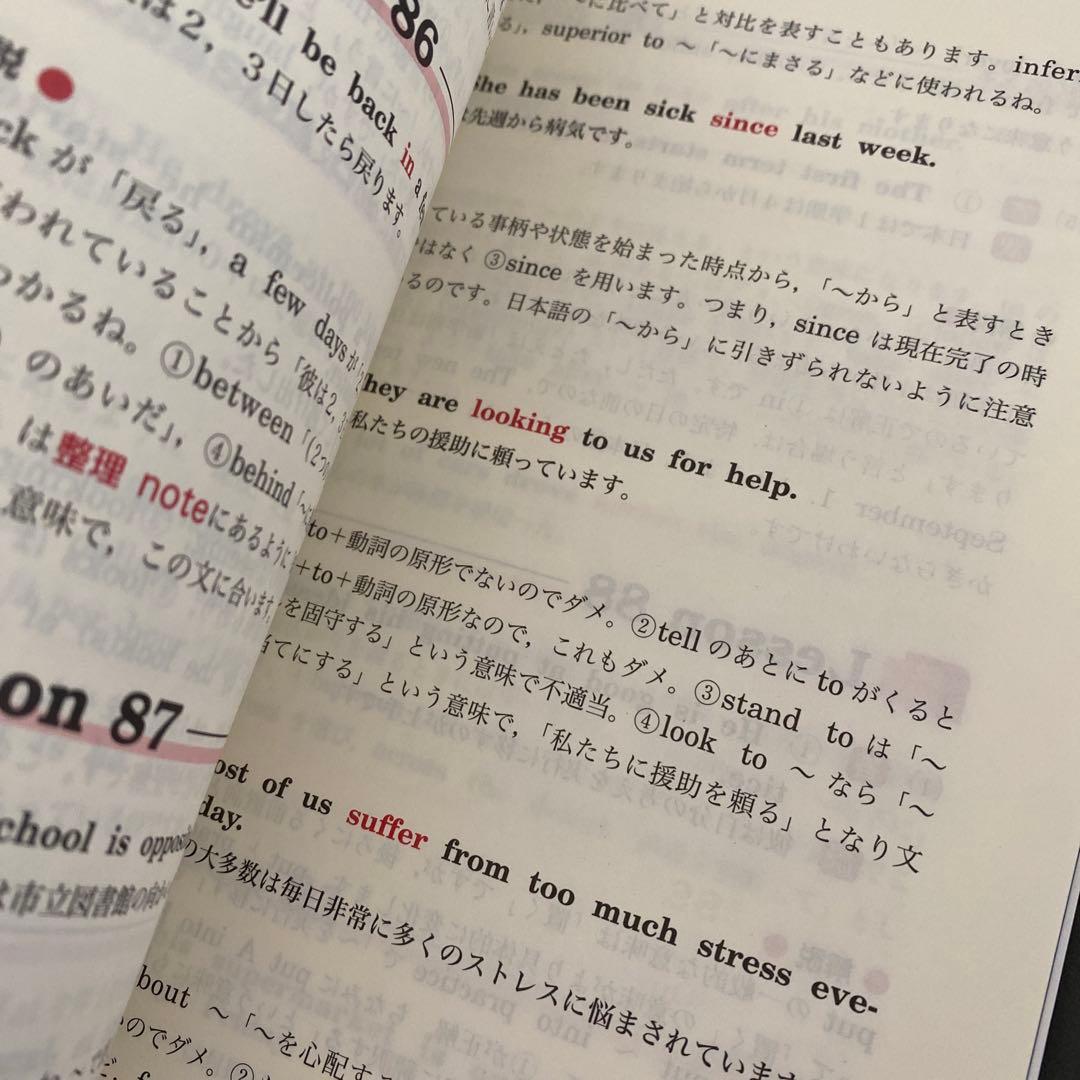 86
'll be back in a f
は2，3日したら戻ります。
説
ck が「戻る」，a few days が
われていることから「彼は2，3
つかるね。①between「(2つ
のあいだ」，④behind「～
は整理 noteにあるように
意味で，この文に合います。
on 87
chool is oppos
は市立図書館の向か
に比べて」と対比を表すこともあります。inferi
る」，superior to ～「～にまさる」などに使われるね。
he has been sick since last week.
先週から病気です。
ている事柄や状態を始まった時点から，「～から」と表すとき
ではなく ③since を用います。つまり，since は現在完了の時
るのです。日本語の「～から」に引きずられないように注意
hey are looking to us for help.
私たちの援助に頼っています。
to＋動詞の原形でないのでダメ。②tell のあとに to がくると
＋to＋動詞の原形なので，これもダメ。③stand to は「～
を固守する」という意味で不適当。④look to ～ なら「～
当てにする」という意味で，「私たちに援助を頼る」となり文
ost of us suffer from too much stress eve-
day.
の大多数は毎日非常に多くのストレスに悩まされています
bout ～「～を心配する
いのでダメ。②